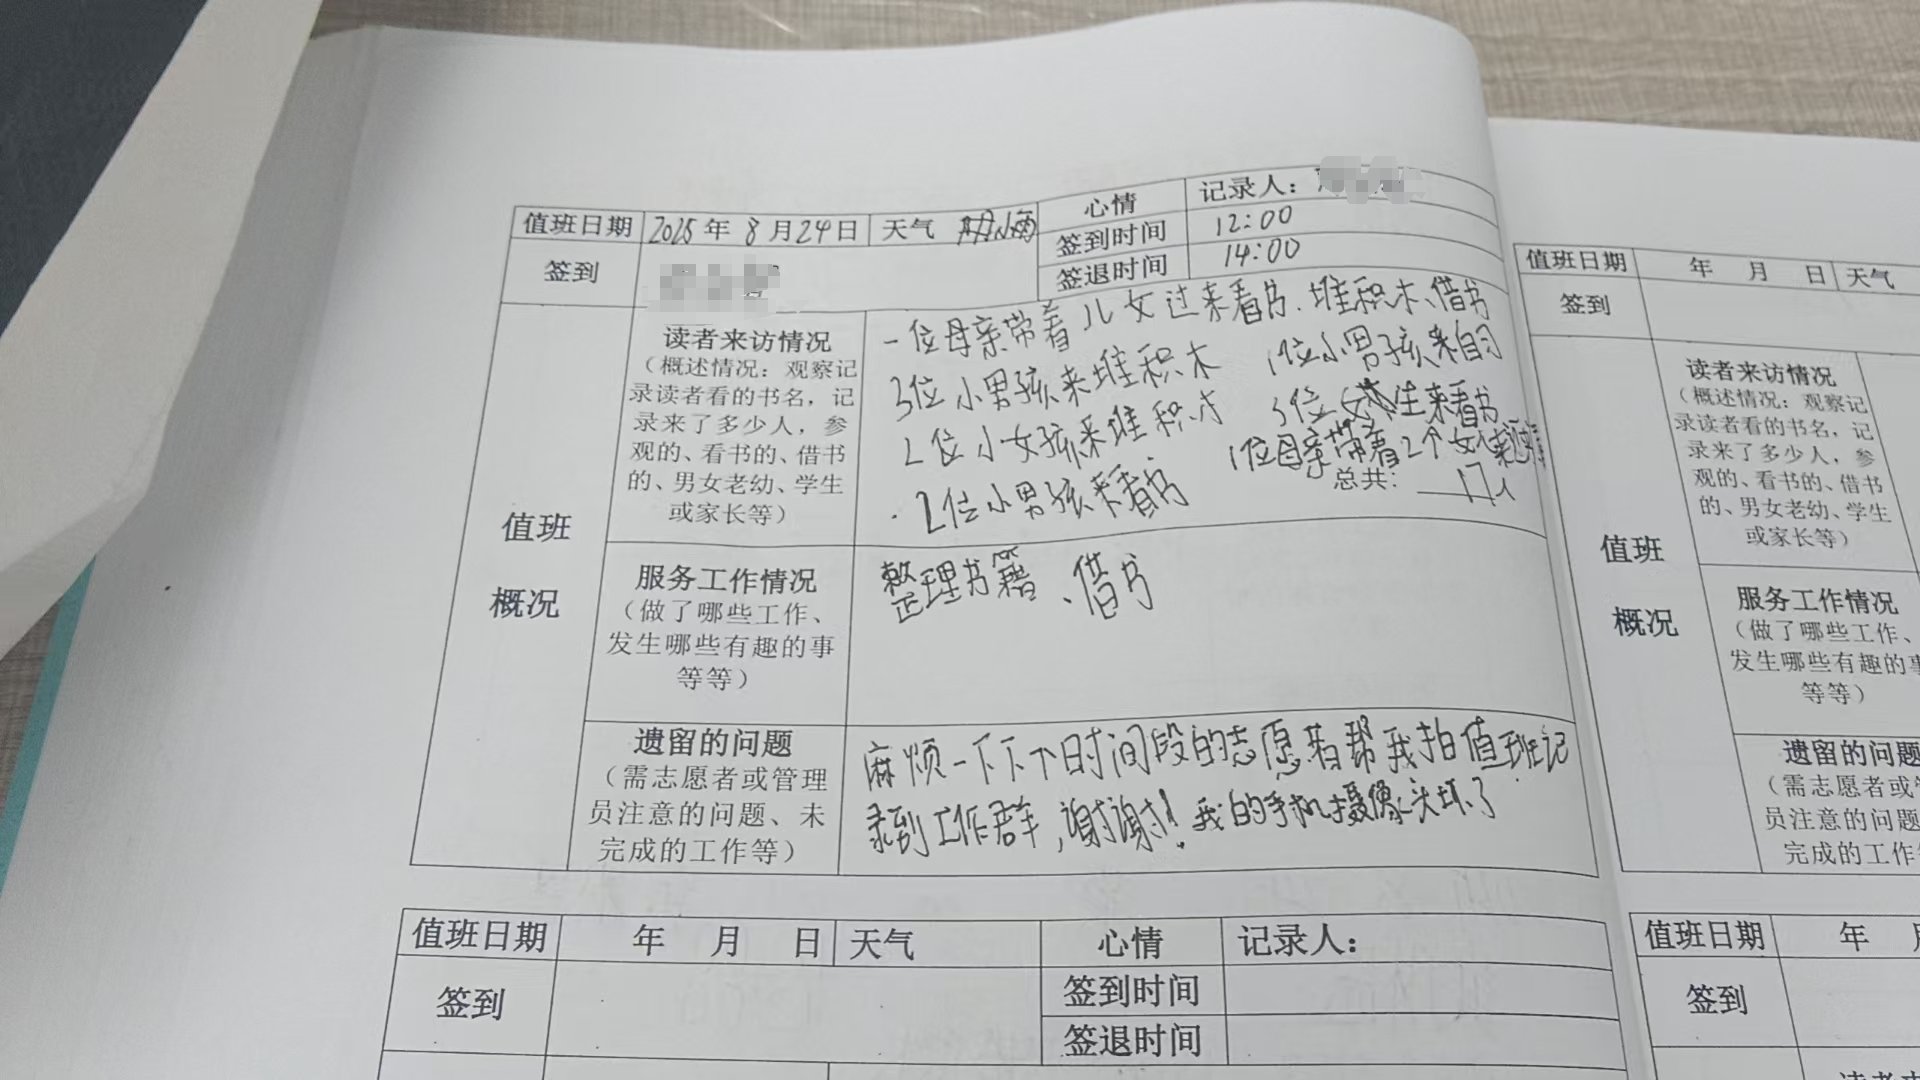 值班日期 2025年 8月24日 天气 阴小雨 心情 记录人：
签到 签到时间 12:00
签退时间 14:00
值班概况
读者来访情况
（概述情况：观察记
录读者看的书名，记
录来了多少人，参
观的、看书的、借书
的、男女老幼、学生
或家长等）
一位母亲带着儿女过来看书、堆积木、借书
3位小男孩来堆积木 1位小男孩来自习
2位小女孩来堆积木 3位女学生来看书
2位小男孩来看书 1位母亲带着2个女
总共： 17人
服务工作情况
（做了哪些工作、
发生哪些有趣的事
等等）
整理书籍、借书
遗留的问题
（需志愿者或管理
员注意的问题、未
完成的工作等）
麻烦一下下下时间段的志愿者帮我拍值班记
录到工作群，谢谢！我的手机摄像头坏了
值班日期 年 月 日 天气 心情 记录人：
签到 签到时间
签退时间
值班日期 年 月 日 天气
签到
值班概况
读者来访情况
（概述情况：观察记
录读者看的书名，记
录来了多少人，参
观的、看书的、借书
的、男女老幼、学生
或家长等）
服务工作情况
（做了哪些工作、
发生哪些有趣的事
等等）
遗留的问题
（需志愿者或管
员注意的问题
完成的工作
值班日期 年
签到